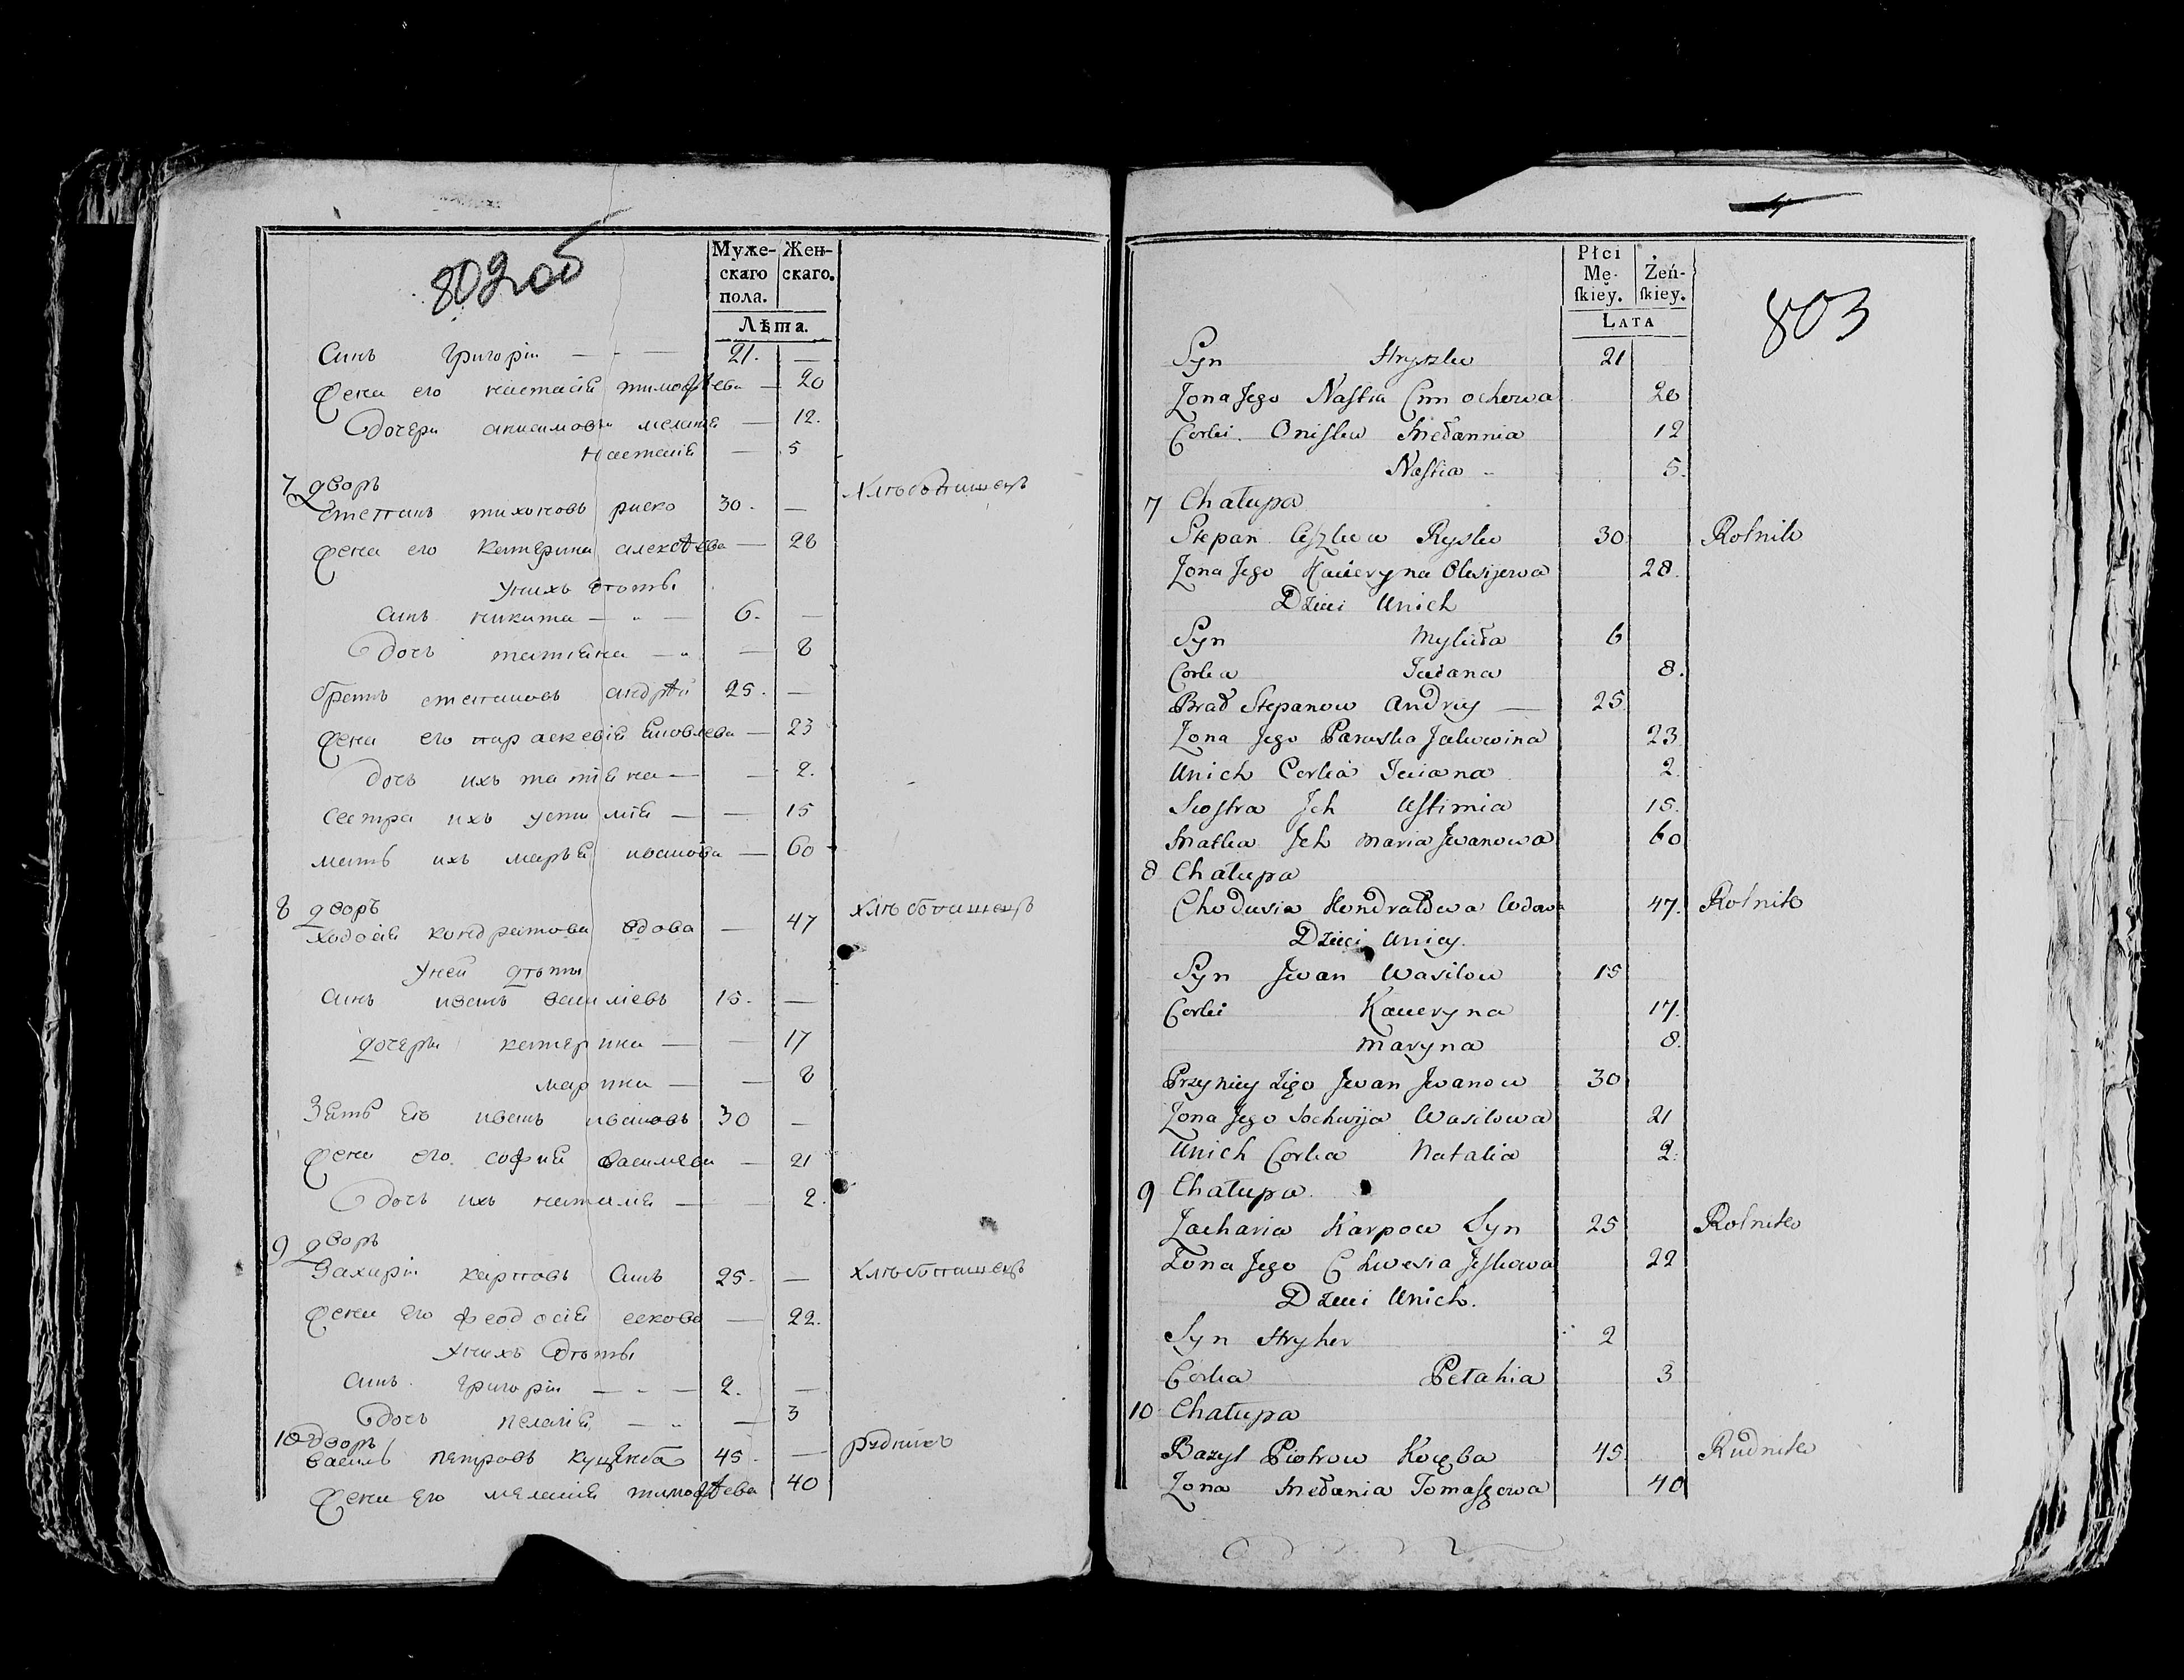 802об
Муже-
скаго
пола.
Жен-
скаго.
Лѣта.
Синъ Григорїи — 21. —
Жена его настасїя тимофѣева — 20
Дочери анисимовы меланїя — 12.
Настасїя — 5
7 дворъ
Степанъ тихоновъ риско 30. — хлѣбопашецъ
Жена его катерина алексѣева — 28
Унихъ дѣты
Синъ никита — 6. —
Дочь татіяна — 8
братъ степановъ андрѣй 25. —
Жена его параскевїя яковлева — 23
дочь ихъ татіяна — 2.
сестра ихъ устимїя — 15
мать ихъ марья иванова — 60
8 дворъ
Ходосїя кондратова вдова — 47 хлѣбопашецъ
Уней дѣты
Синъ иванъ василіевъ 15. —
дочеры катерина — 17
марина — 8
Зять Ея иванъ ивановъ 30 —
Жена его софия василіева — 21
Дочъ ихъ наталїя — 2.
9 дворъ
Захарїи карповъ Синъ 25. — хлѣбопашецъ
Жена Его феодосїя ескова — 22.
Унихъ Дѣты
Синъ Григорїи — 2. —
Дочъ пелагїя — 3
10 дворъ
Василь петровъ 45. — рудникъ
Жена Его меланїя тимофѣева 40
803
Płci
Mę-
ſkiey.
Żeń-
ſkiey.
LATA
Syn Hryszko 21
Zona Jego Naſtia Cimochowa 20
Corki Oniſkow Mełannia 12
Naſtia 5.
7 Chałupa
Stepan Ciszkow Rysko 30 Rolnik
Zona Jego Kacieryna Olexijewa 28.
Dzieci Unich
Syn Mykita 6
Corka Taciana 8.
Brat Stepanow Andriy — 25.
Zona Jego Paraska Jakowina 23
Unich Corka Taciana 2.
Sioſtra Jch Uſtimia 15.
Matka Jch Maria Jwanowa 60
8 Chałupa
Chodosia Kondratowa Wdowa 47. Rolnik
Dzieci Uniey.
Syn Jwan Wasilow 15
Corki Kacieryna 17.
Maryna 8.
Przyniey Zięć Jwan Jwanow 30
Zona Jego Sochwija Wasilowa 21
Unich Corka Natalia 2.
9 Chałupa
Zacharia Karpow Syn 25 Rolnik
Zona Jego Chwesia Jeſkowa 22
Dzieci Unich.
Syn Hryhor 2
Corka Pełahia 3
10 Chałupa
Bazyl Piotrow Kocęba 45. Rudnik
Zona Mełania Tomaſzowa 40